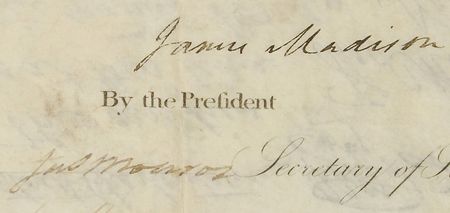 James Madison
By the Preſident
Jas Monroe Secretary of S